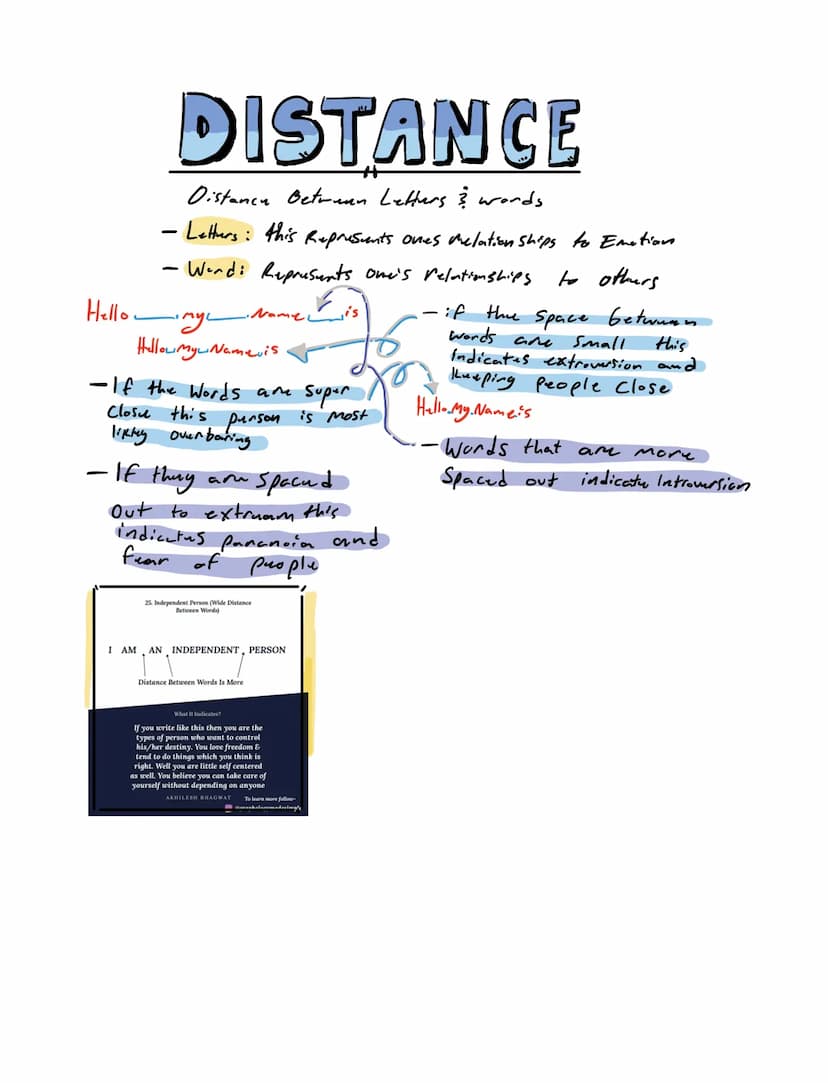 DISTANCE
Distance Between Letters & words
- Letters: this Represents ones Relationships to Emotion
- Word: Represents one's relationships to others
Hello my Name is
Hello My Name is
- If the Words are super
close this person is most
likly overbaring
- If they are spaced
out to extream this
indicates paranoia and
fear of people
- if the space between
words are small this
indicates extroversion and
Keeping People close
Hello My Name is
- Words that are more
Spaced out indicate Introversion
25. Independent Person (Wide Distance
Between Words)
I AM AN INDEPENDENT PERSON
Distance Between Words Is More
What It Indicates?
If you write like this then you are the
types of person who want to control
his/her destiny. You love freedom &
tend to do things which you think is
right. Well you are little self centered
as well. You believe you can take care of
yourself without depending on anyone
AKHILESH BHAGWAT
To learn more follow-